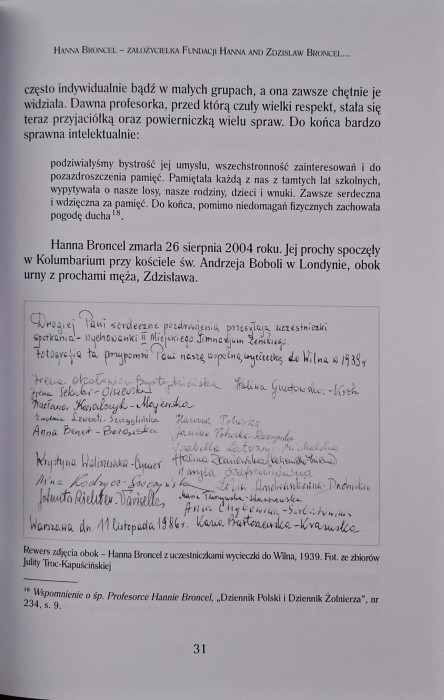 HANNA BRONCEL – ZAŁOŻYCIELKA FUNDACJI HANNA AND ZDZISŁAW BRONCEL...
często indywidualnie bądź w małych grupach, a ona zawsze chętnie je
widziała. Dawna profesorka, przed którą czuły wielki respekt, stała się
teraz przyjaciółką oraz powierniczką wielu spraw. Do końca bardzo
sprawna intelektualnie:
podziwiałyśmy bystrość jej umysłu, wszechstronność zainteresowań i do
pozazdroszczenia pamięć. Pamiętała każdą z nas z tamtych lat szkolnych,
wypytywała o nasze losy, nasze rodziny, dzieci i wnuki. Zawsze serdeczna
i wdzięczna za pamięć. Do końca, pomimo niedomagań fizycznych zachowała
pogodę ducha18.
Hanna Broncel zmarła 26 sierpnia 2004 roku. Jej prochy spoczęły
w Kolumbarium przy kościele św. Andrzeja Boboli w Londynie, obok
urny z prochami męża, Zdzisława.
Drogiej Pani serdeczne pozdrowienia przesyłają uczestniczki
spotkania - wychowanki II Miejskiego Gimnazjum Żeńskiego.
Fotografia ta przypomni Pani naszą wspólną wycieczkę do Wilna w 1939 r
Irena Halina
Irena
Kowalczyk - Majewska Hanna
Janina
Anna
Krystyna Waliszewska - Halina
Nina
Jolanta
Anna
Warszawa dn. 11 listopada 1986 r.
Rewers zdjęcia obok – Hanna Broncel z uczestniczkami wycieczki do Wilna, 1939. Fot. ze zbiorów
Julity Troc-Kapuścińskiej
18 Wspomnienie o śp. Profesorce Hannie Broncel, „Dziennik Polski i Dziennik Żołnierza”, nr
234, s. 9.
31